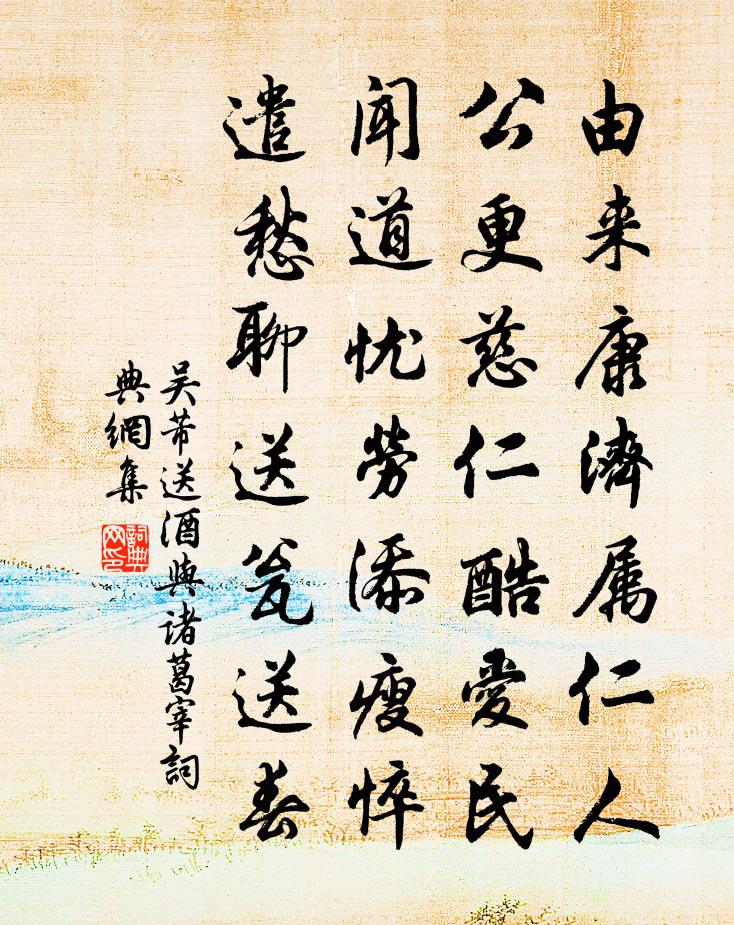 由来康濟属仁人
公更慈仁酷愛民
闻道忧勞添瘦悴
遣愁聊送瓮送春
吴芾送酒與诸葛宰詞
典網集
詞典
网印